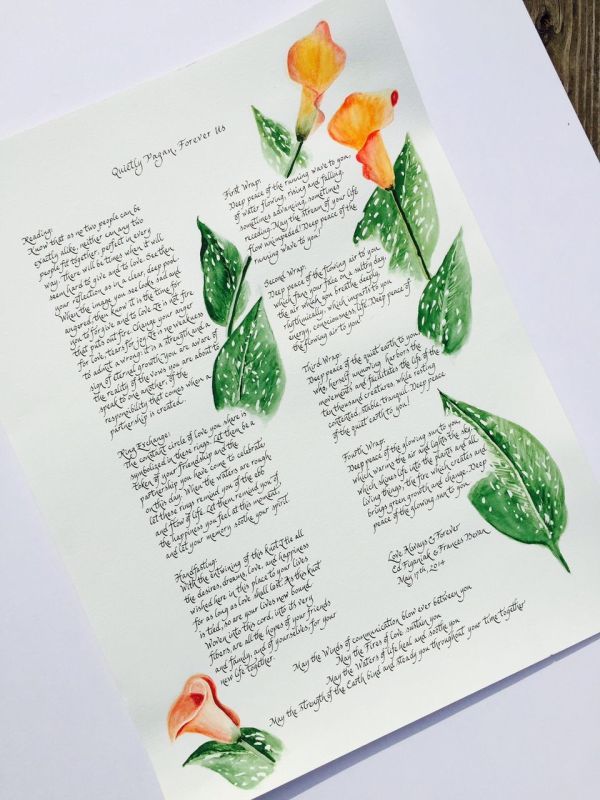 Quietly Pagan, Forever Us
Reading:
Know that as no two people can be
exactly alike, neither can any two
people fit together, perfect in every
way. There will be times when it will
seem hard to give and to love. See then
your reflection as in a clear, deep pool.
When the image you see looks sad and
angered, then know it is the time for
you to forgive and to love. It is not fire
that puts out fire. Change your anger
for love, tears for joy. It is no weakness
to admit a wrong: it is a strength and a
sign of eternal growth. You are aware of
the reality of the vows you are about to
speak to one another, of the
responsibility that comes when a
partnership is created.
Ring Exchange:
The constant circle of love you share is
symbolized in these rings. Let them be a
token of your friendship and the
partnership you have come to celebrate
on this day. When the waters are rough
let these rings remind you of the ebb
and flow of life. Let them remind you of
the happiness you feel at this moment,
and let your memory soothe your spirit.
Handfasting:
With the entwining of this knot I tie all
the desires, dreams, love, and happiness
wished here in this place to your lives
for as long as love shall last. As this knot
is tied, so are your lives now bound.
Woven into this cord, into its very
fibers, are all the hopes of your friends
and family, and of yourselves, for your
new life together.
First Wrap:
Deep peace of the running wave to you,
of water flowing, rising and falling,
sometimes advancing, sometimes
receding. May the stream of your life
flow unimpeded! Deep peace of the
running wave to you!
Second Wrap:
Deep peace of the flowing air to you,
which fans your face on a sultry day,
the air which you breathe deeply,
rhythmically, which imparts to you
energy, consciousness, life. Deep peace of
the flowing air to you!
Third Wrap:
Deep peace of the quiet earth to you,
who, herself unmoving, harbors the
movements and facilitates the life of the
ten thousand creatures, while resting
contented, stable, tranquil. Deep peace
of the quiet earth to you!
Fourth Wrap:
Deep peace of the glowing sun to you,
which warms the air and lights the sky,
which shines life into the plants and all
living things, the fire which creates and
brings green growth and change. Deep
peace of the glowing sun to you.
Love Always & Forever
Ed & Frances Bevan
May 17th, 2014
May the Winds of communication blow ever between you
May the Fires of Love sustain you
May the Waters of life heal and soothe you
May the strength of the Earth bind and steady you throughout your time together